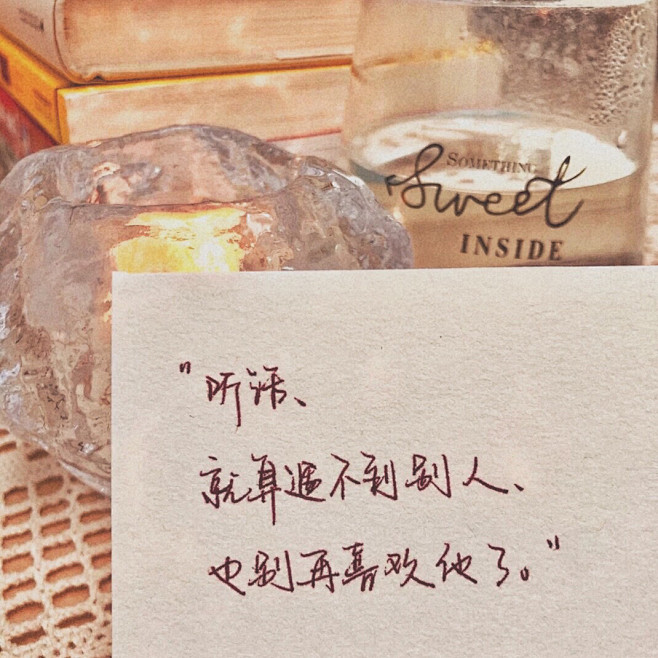 SOMETHING
Sweet
INSIDE
"听话、
就算遇不到别人、
也别再喜欢他了。"